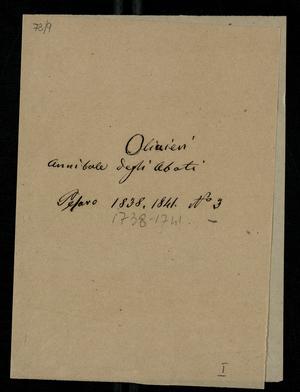 78/9
Olivieri
Annibale degli Abati
Pesaro 1838, 1841. No 3
1738-1741.
I